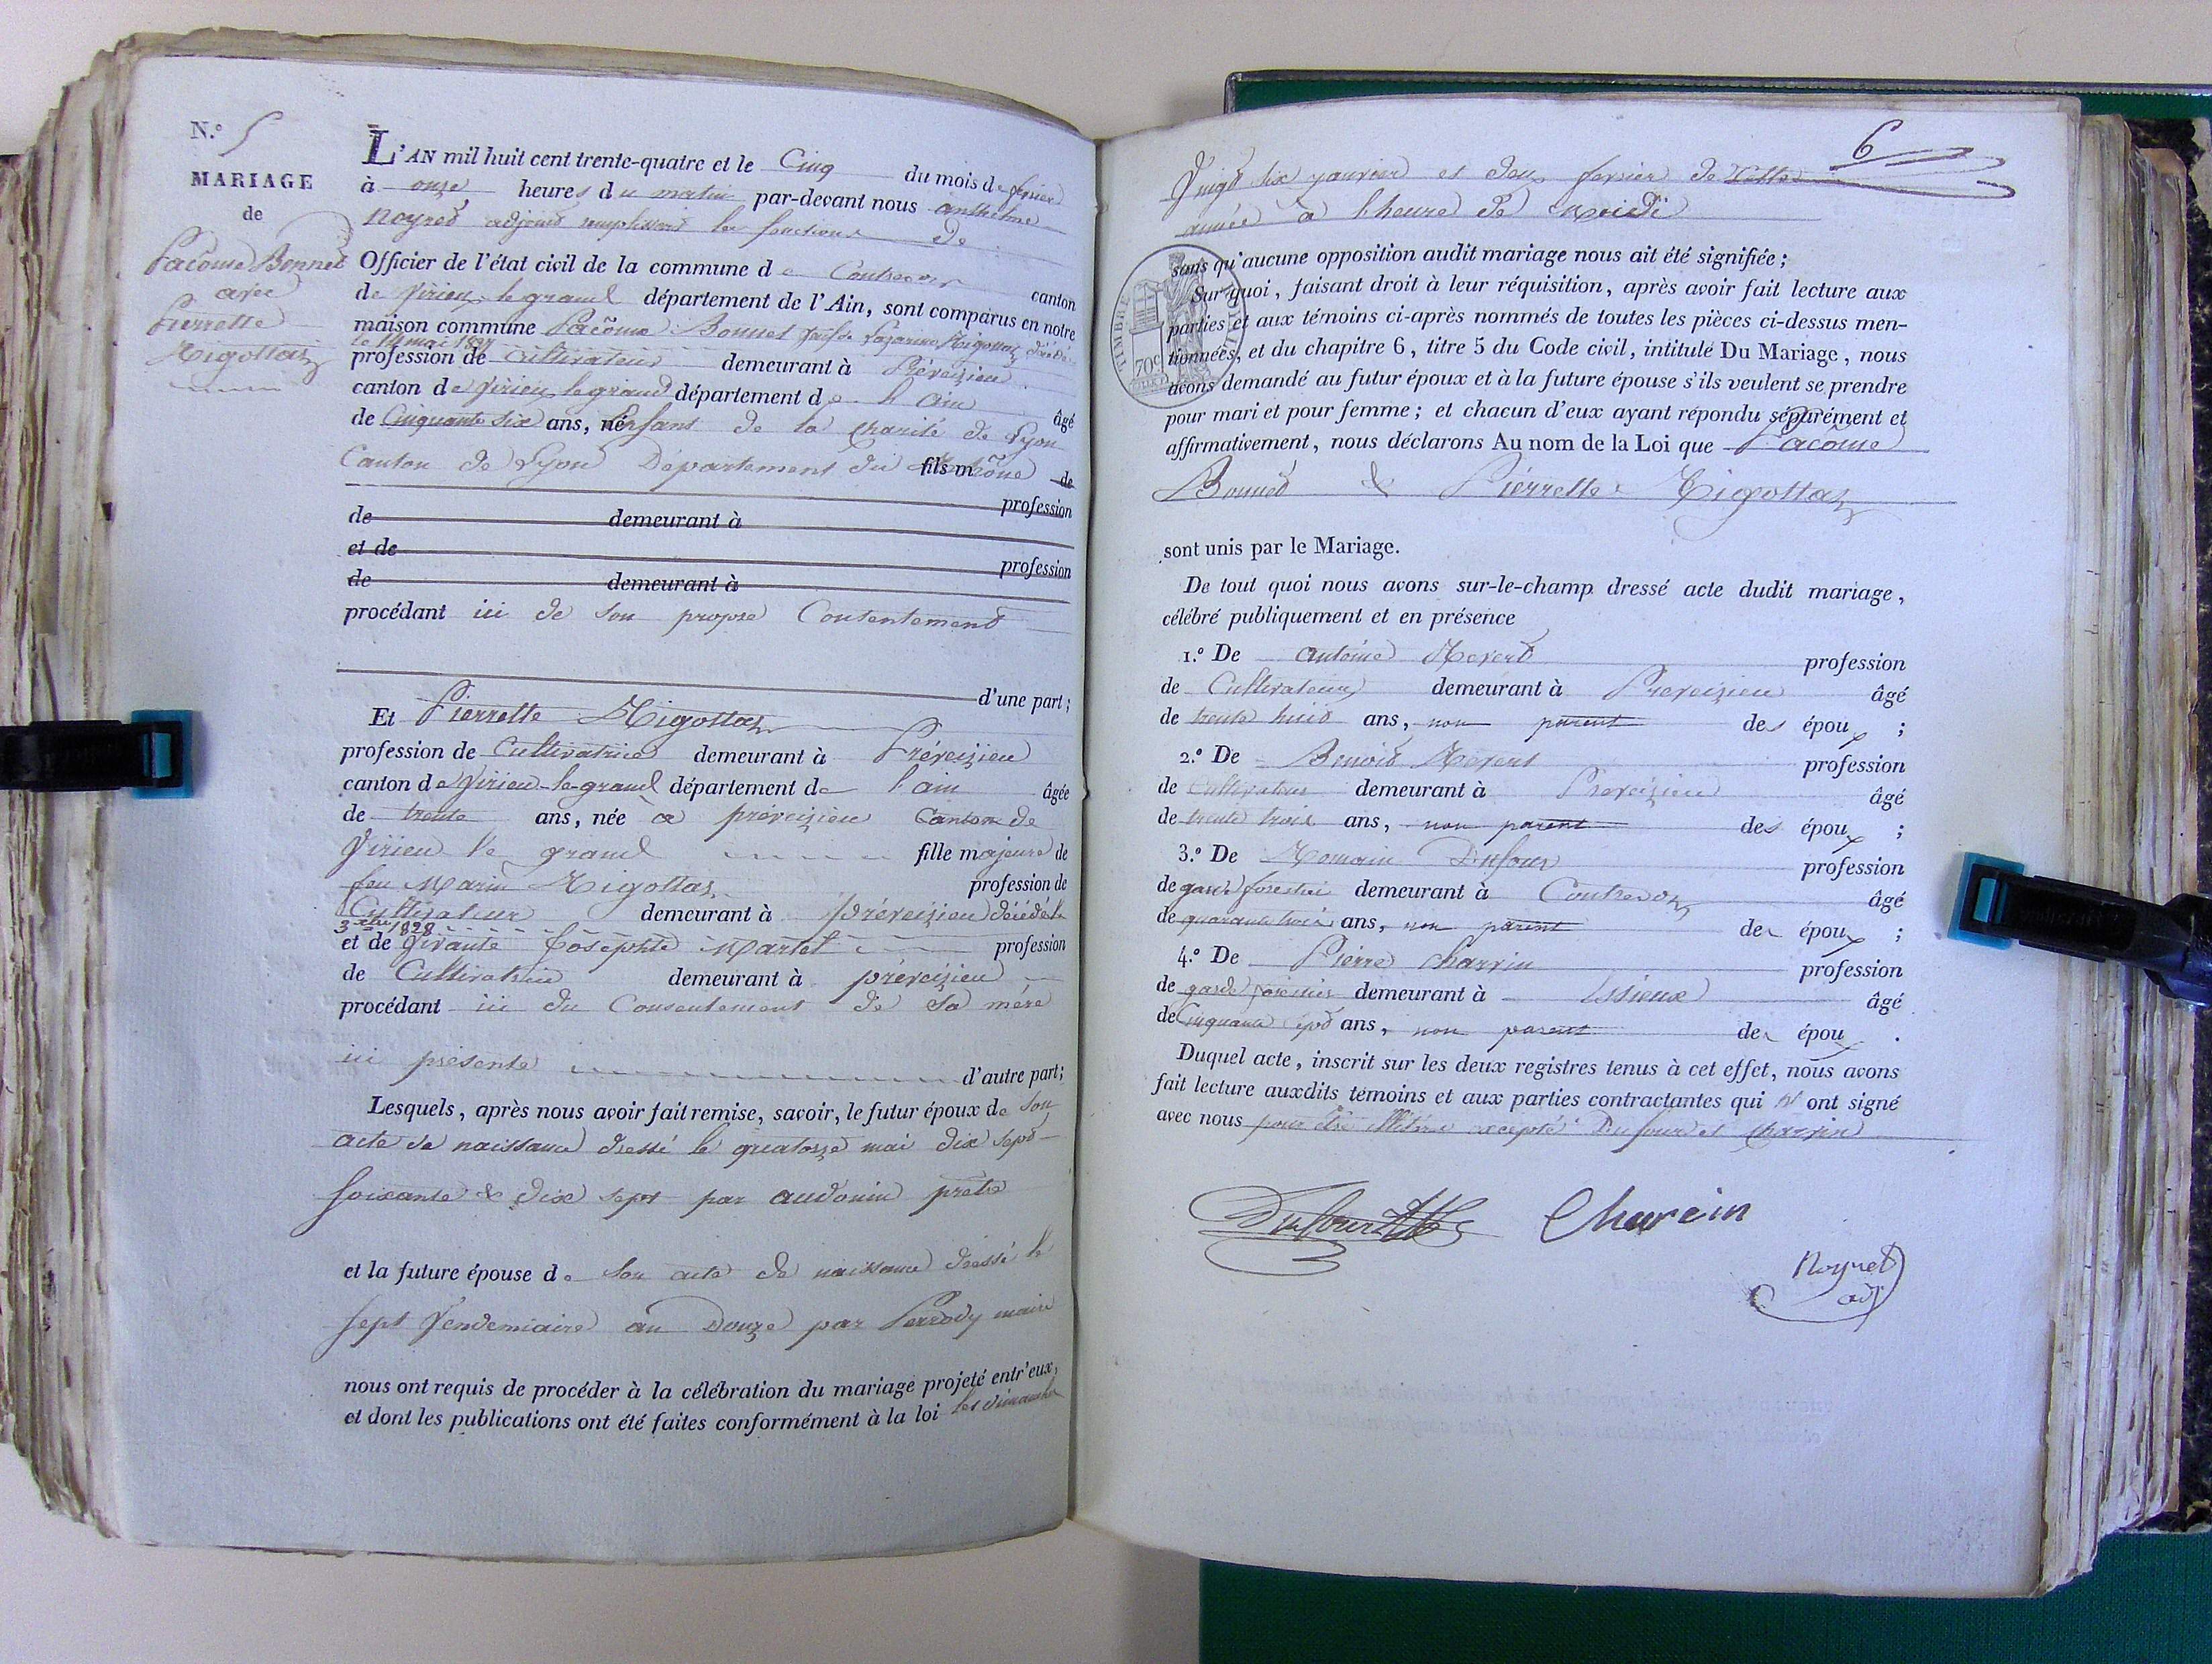 N.o 5
MARIAGE
de
Pacôme Bonnet
avec
Pierrette
Rigottaz
L'AN mil huit cent trente-quatre et le Cinq du mois de fevrier
à onze heures du matin par-devant nous anthelme
Noyret adjoint remplissant les fonctions de
Officier de l'état civil de la commune de Contrevoz canton
de Virieu-le-grand département de l'Ain, sont comparus en notre
maison commune Pacôme Bonnet veuf de Rigottaz décédée
le 14 mai 1827
profession de Cultivateur demeurant à Préveizieu
canton de Virieu le grand département de l'ain âgé
de Cinquante six ans, né Enfant de la charité de Lyon
Canton de Lyon Département du Rhône fils m de
profession
de demeurant à
et de profession
de demeurant à
procédant ici de son propre Contentement
d'une part;
Et Pierrette Rigottaz
profession de Cultivatrice demeurant à Préveizieu
canton de Virieu-le-grand département de l'ain âgée
de trente ans, née à préveizieu Canton de
Virieu le grand fille majeure de
feu Marin Rigottaz profession de
Cultivateur demeurant à préveizieu décédé le
3 1828
et de vivante Josephte Martel profession
de Cultivatrice demeurant à préveizieu
procédant ici du Consentement de sa mère
ici présente d'autre part;
Lesquels, après nous avoir fait remise, savoir, le futur époux de son
acte de naissance dressé le quatorze mai dix sept
soixante & dix sept par audouin prêtre
et la future épouse de son acte de naissance dressé le
sept Vendemiaire an Douze par Perrody maire
nous ont requis de procéder à la célébration du mariage projeté entr'eux,
et dont les publications ont été faites conformément à la loi les dimanches
6
Vingt six janvier et deux fevrier de cette
année à l'heure de midi
TIMBRE
70c
sans qu'aucune opposition audit mariage nous ait été signifiée;
Sur quoi, faisant droit à leur réquisition, après avoir fait lecture aux
parties et aux témoins ci-après nommés de toutes les pièces ci-dessus men-
tionnées, et du chapitre 6, titre 5 du Code civil, intitulé Du Mariage, nous
avons demandé au futur époux et à la future épouse s'ils veulent se prendre
pour mari et pour femme; et chacun d'eux ayant répondu séparément et
affirmativement, nous déclarons Au nom de la Loi que Pacôme
Bonnet & Pierrette Rigottaz
sont unis par le Mariage.
De tout quoi nous avons sur-le-champ dressé acte dudit mariage,
célébré publiquement et en présence
1.o De antoine profession
de Cultivateur demeurant à Preveizieu âgé
de trente huit ans, non parent des époux;
2.o De Benoit profession
de Cultivateur demeurant à Preveizieu âgé
de trente trois ans, non parent des époux;
3.o De Romain Dufour profession
de garde forestier demeurant à Contrevoz âgé
de quarante trois ans, non parent des époux;
4.o De Pierre Charvin profession
de garde forestier demeurant à âgé
de Cinquante sept ans, non parent des époux.
Duquel acte, inscrit sur les deux registres tenus à cet effet, nous avons
fait lecture auxdits témoins et aux parties contractantes qui n' ont signé
avec nous pour être illitéré excepté Dufour et Charvin
Dufour Charvin
Noyret
adj